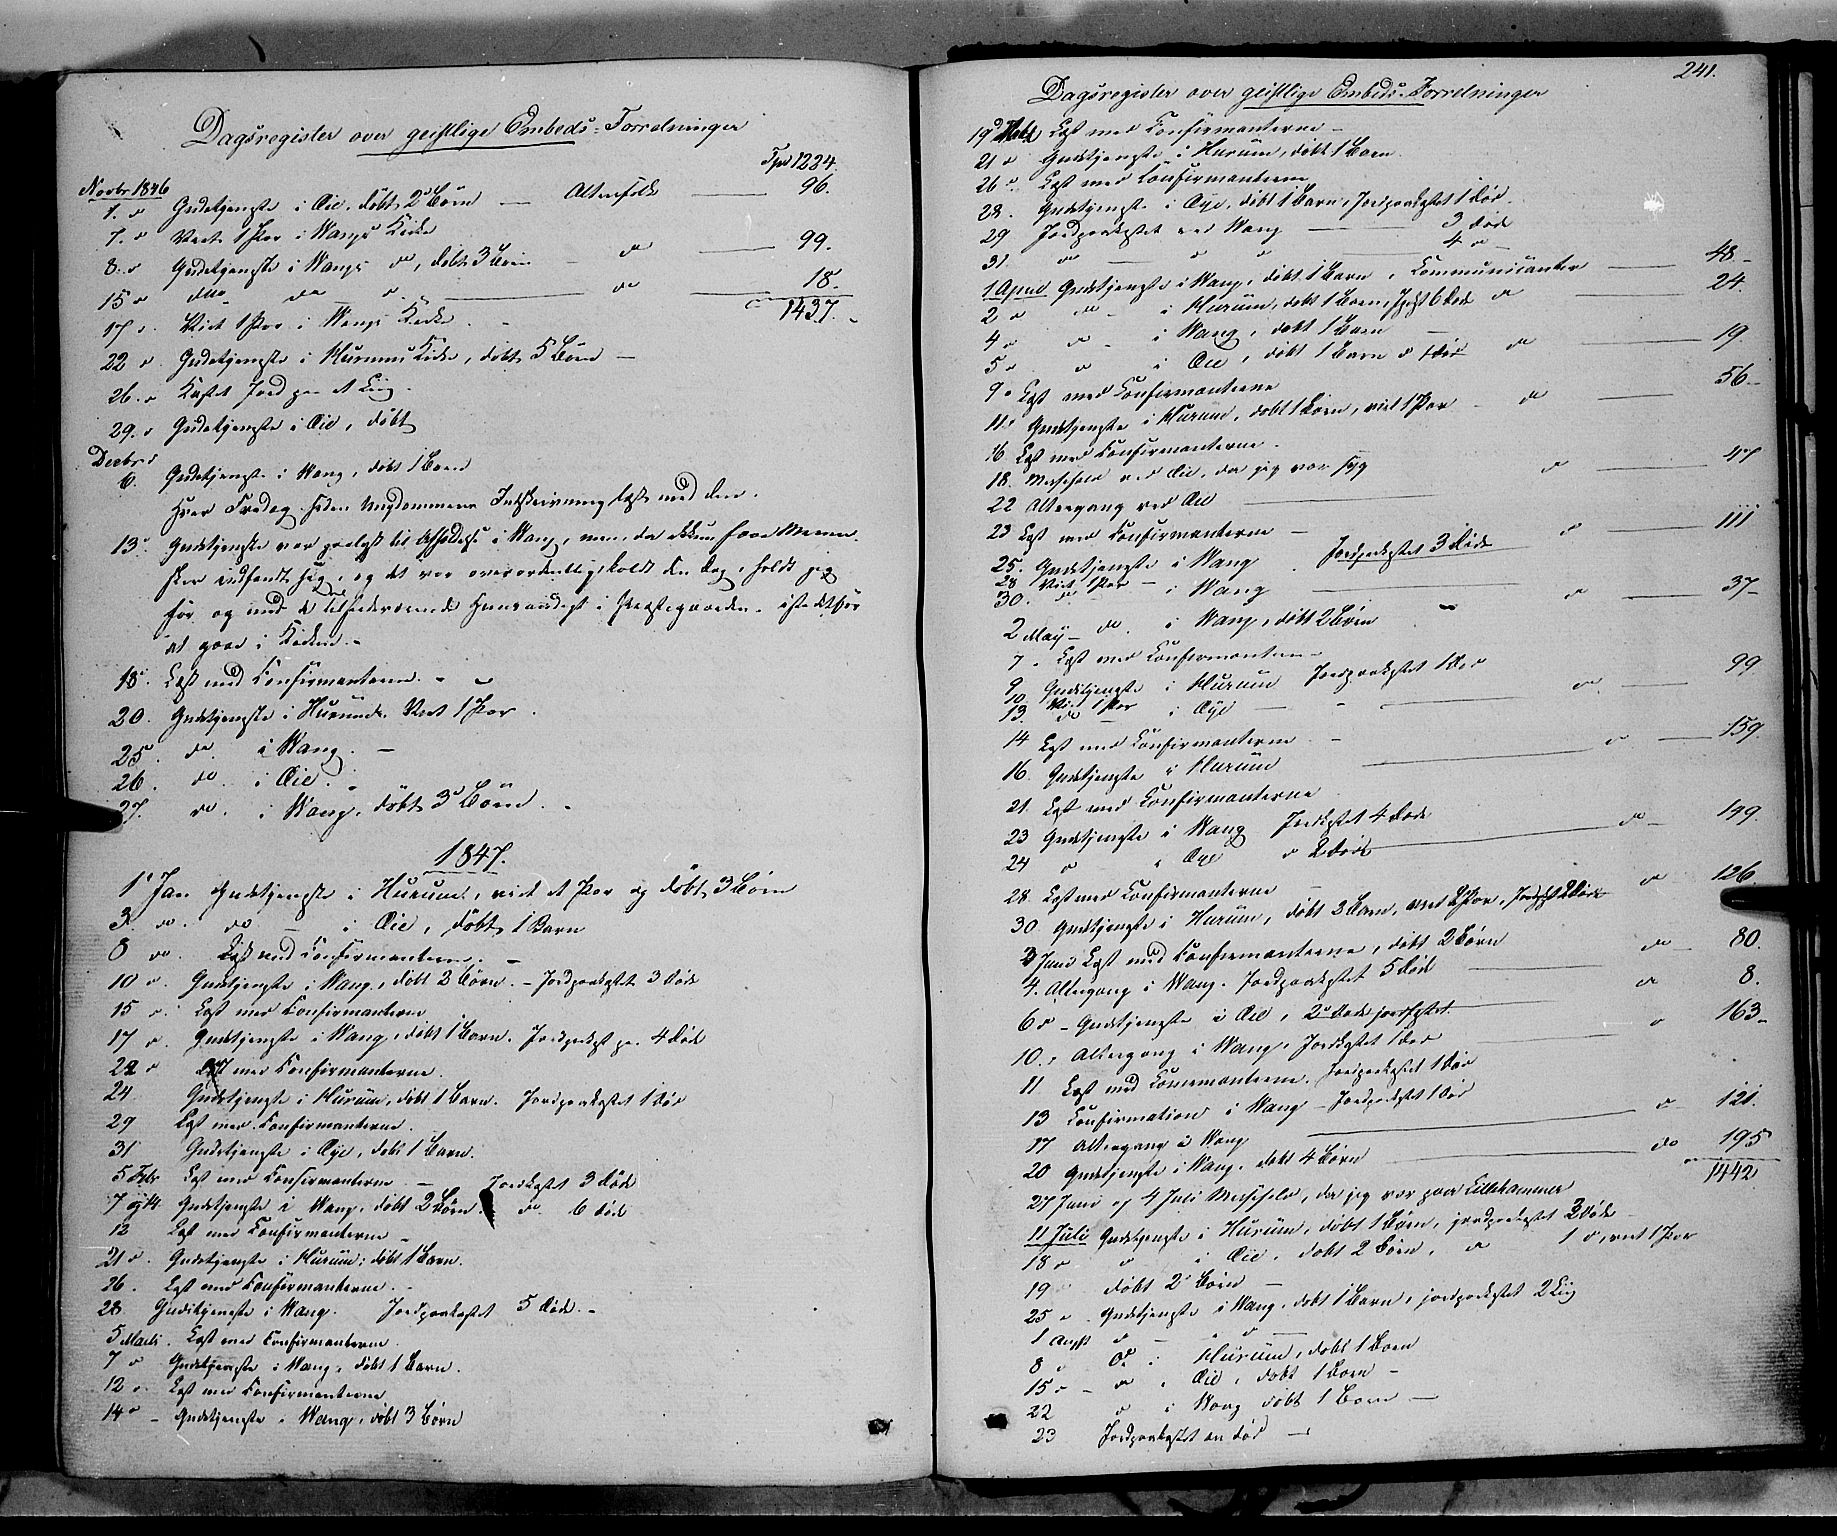 Dagsregister over geistlige Embeds-Forretninger
Tpt 1224.
Novbr 1846
1. d Gudstjeneste i Øie, døbt 2 Børn — Altersfolk — 96.
7. d Viet 1 Par i Wangs Kirke
8. d Gudstjeneste i Wangs do, døbt 3 Børn — do — 99.
15 d do do d. — do — 18.
1437.
17 d. Viet 1 Par i Wangs Kirke
22 d Gudstjeneste i Hurums Kirke, døbt 5 Børn —
26. d Kastet Jord paa et Liig.
29. d Gudstjeneste i Øie, døbt
Decbr
6. Gudstjeneste i Wang, døbt 1 Barn
Hver Fredag siden Ungdommens Indskrivning læst med den.
13. Gudstjeneste var paalyst til Afholdelse i Wang, men, da ikkun faae Menne-
sker indfandt sig, og det var overordentlig koldt den Dag, holdt jeg
for og med de Tilstedeværende Huusandagt i Præstegaarden, istedetfor
at gaae i Kirken.—
18. Læst med Confirmanterne. —
20. Gudstjeneste i Hurum. Viet 1 Par.
25 do i Wang. —
26. do i Øie.
27. do. i Wang, døbt 3 Børn.
1847.
1 Jan Gudstjeneste i Hurum, viet et Par og døbt 3 Børn
3. do. do — i Øie, døbt 1 Barn
8 do. Læst med Confirmanterne. —
10 d. Gudstjeneste i Wang, døbt 2 Børn. — Jordpaakastet 3 Døde
15 d. Læst med Confirmanterne
17 d. Gudstjeneste i Wang, døbt 1 Barn. Jordpaakast paa 4 Døde
22 d Læst med Confirmanterne.
24 Gudstjeneste i Hurum, døbt 1 Barn. Jordpaakastet 1 Død
29 Læst med Confirmanterne.
31 Gudstjeneste i Øye, døbt 1 Barn.
5 Febr Læst med Confirmanterne — Jordkastet 3 Døde
7 og 14 Gudstjeneste i Wang, døbt 2 Børn. do. 6 Døde
12 Læst med Confirmanterne —
21 d. Gudstjeneste i Hurum, døbt 1 Barn.
26. Læst med Confirmanterne. —
28 Gudstjeneste i Wang. Jordpaakastet 5 Døde. —
5 Marts. Læst med Confirmanterne
7 d Gudstjeneste i Wang, døbt 1 Barn.
12 d. Læst med Confirmanterne
14 d — Gudstjeneste i Wang, døbt 3 Børn
241.
Dagsregister over geistlige Embeds-Forretninger
19 Læst med Confirmanterne —
21 d Gudstjeneste i Hurum, døbt 1 Barn.
26 d. Læst med Confirmanterne
28. Gudstjeneste i Øye, døbt 1 Barn, Jordpaakastet 1 Død.
29 Jordpaakastet ved Wang — 3 Døde
31. d — d d — 4 d —
1 April Gudstjeneste i Wang, døbt 1 Barn, Communicanter — 48 —
2 d do — i Hurum, døbt 1 Barn, 6 Døde do — 24.
4 d d — i Wang, døbt 1 Barn —
5 d d i Øie, døbt 1 Barn do — 19
9 d Læst med Confirmanterne
11. d Gudstjeneste i Hurum, døbt 1 Barn, viet 1 Par — do — 56 —
16 Læst med Confirmanterne.
18. Messefald ved Øie, da jeg var syg
22 Altergang ved Øie — do — 47
23 Læst med Confirmanterne —
25. Gudstjeneste i Wang. Jordpaakastet 3 Døde d — 111
28 Viet 1 Par —
30. do i Wang — do — 37 —
2 May — do. i Wang, døbt 2 Børn —
7 — Læst med Confirmanterne —
9 Gudstjeneste i Hurum Jordpaakastet 1 Død
10 Viet 1 Par
13. do — i Øye — do — 99
14 Læst med Confirmanterne —
16 Gudstjeneste i Hurum — d — 159
21. Læst med Confirmanterne
23 Gudstjeneste i Wang Jordkastet 4 Døde
24 d i Øye d 2 Døde — do — 199.
28. Læst med Confirmanterne —
30. Gudstjeneste i Hurum, døbt 3 Børn, viet 2 Par, do 126
3 Juni Læst med Confirmanterne, døbt 2 Børn
4. Altergang i Wang. Jordpaakastet 5 Død — do — 80.
6 d — Gudstjeneste i Øie, 2 Døde jordfæstet — do 8.
10. d Altergang i Wang, Jordkastet 1 Død — d 163 —
11 Læst med Confirmanterne. Jordpaakastet 1 Død
13 Confirmation i Wang — Jordpaakastet 1 Død
17 Altergang i Wang — d — 121.
20 Gudstjeneste i Wang, døbt 4 Børn — do 195
1442
27 Juni og 4 Juli Messefald, da jeg var paa Lillehammer
11 Juli Gudstjeneste i Hurum, døbt 1 Barn, jordpaakastet 2 Døde —
18 d d i Øie, døbt 2 Børn, do 1 d, viet 1 Par
19 d døbt 2 Børn —
25 d. Gudstjeneste i Wang, døbt 1 Barn, jordpaakastet 2 Liig
1 Augst d — d —
8 d do i Hurum, døbt 1 Barn
15 d — do i Øie, døbt 1 Barn —
22 d i Wang døbt 1 Barn —
23 Jordpaakastet en Død —